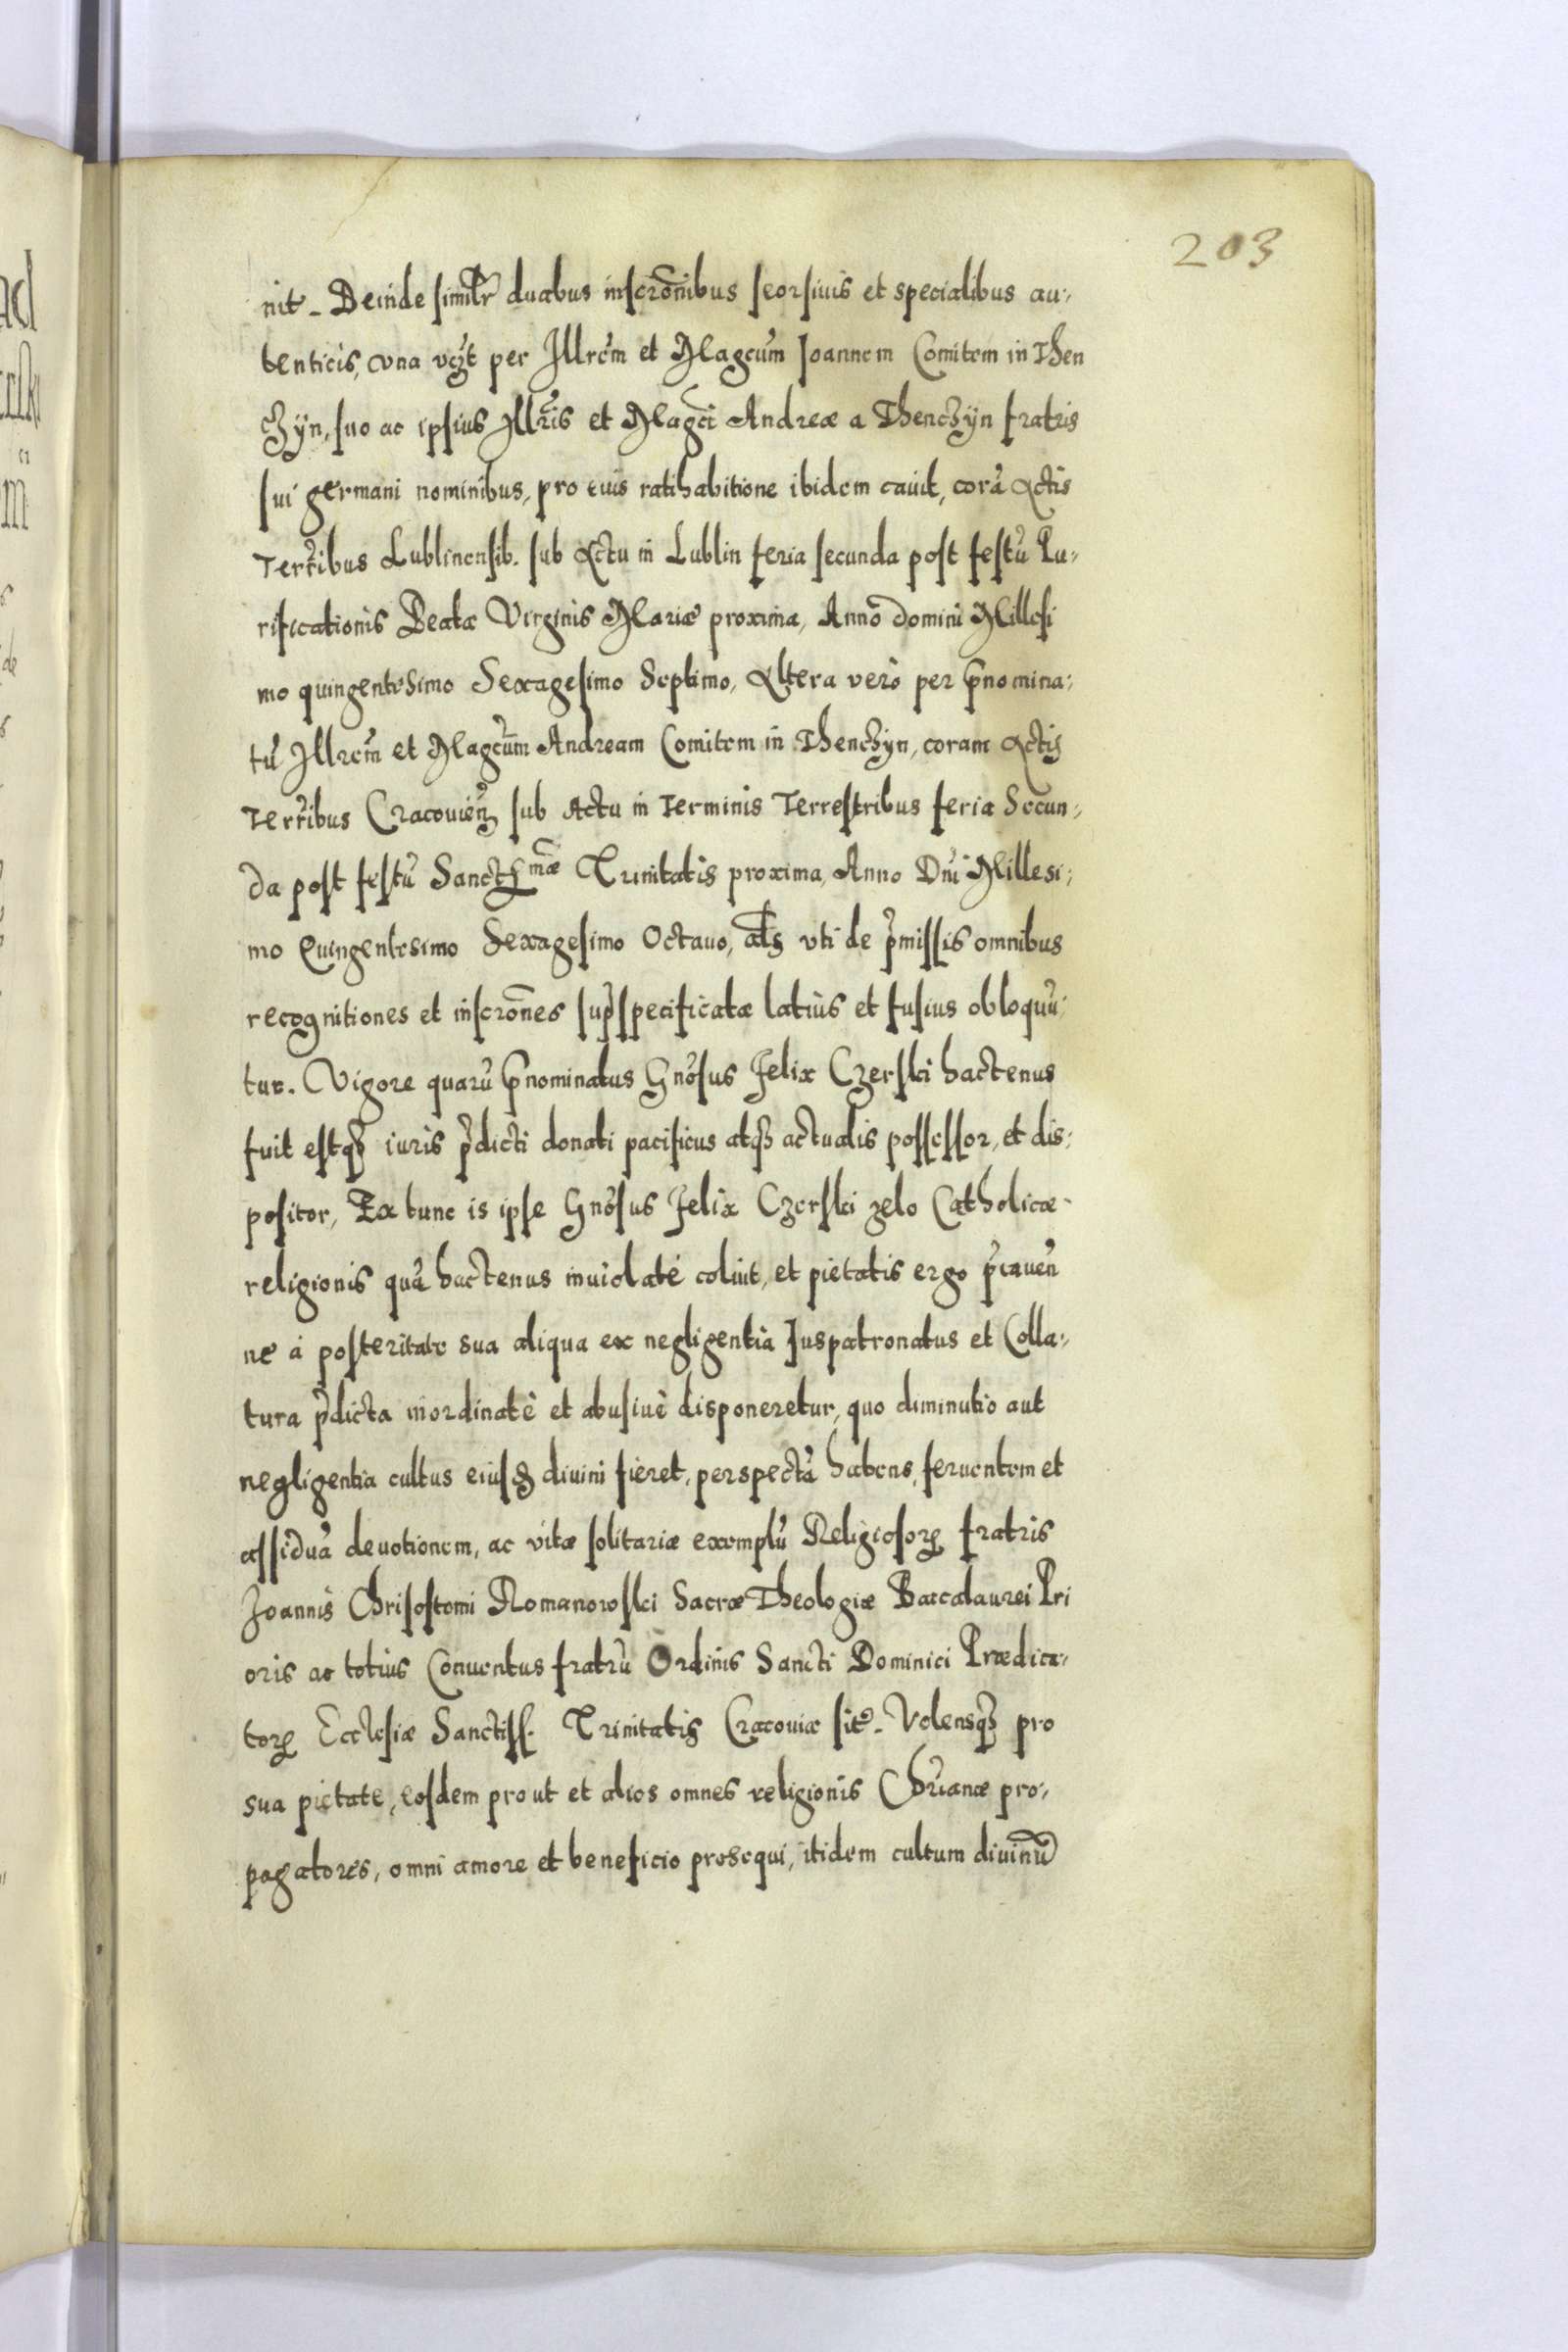 203
nit. Deinde similr̃ duabus inscrõnibus seorsiuis et specialibus au-
tenticis, vna vẓt per Illrem̃ et Magcum̃ Joannem Comitem in Then
czÿn, suo ac ipsius Illrĩs et Magcĩ Andreæ a Thenczÿn fratris
sui germani nominibus, pro cuis ratihabitione ibidem cauit, corã Actis
Terrĩbus Lublinensib. sub Actu in Lublin feria secunda post festũ Pu-
rificationis Beatæ Virginis Mariæ proxima, Anno domini Millesi
mo quingentesimo Sexagesimo Septimo, Altera verò per p̃nomina-
tũ Illrem̃ et Magcum̃ Andream Comitem in Thenczÿn, coram Actis
Terrĩbus Cracouieñ sub Actu in Terminis Terrestribus feria Secun-
da post festũ Sanctissmæ Trinitatis proxima, Anno Dnĩ Millesi-
mo Quingentesimo Sexagesimo Octauo, als̃ vti de p̃missis omnibus
recognitiones et inscrõnes sup̃specificatæ latius et fusius obloquũ-
tur. Vigore quarũ p̃nominatus Gnõsus Felix Czerski hactenus
fuit estqꝫ iuris p̃dicti donati pacificus atqꝫ actualis possessor, et dis-
positor, Ex tunc is ipse Gnõsus Felix Czerski zelo Catholicæ
religionis quã hactenus inuiolatè coluit, et pietatis ergo p̃caueñ
ne à posteritate sua aliqua ex negligentia Juspatronatus et Colla-
tura p̃dicta inordinatè et abusiuè disponeretur, quo diminutio aut
negligentia cultus eiusdꝫ diuini fieret, perspectã habens, feruentem et
assiduã deuotionem, ac vitæ solitariæ exemplũ Religiosorꝫ fratris
Joannis Chrisostomi Romanowski Sacræ Theologiæ Baccalaurei Pri
oris ac totius Conuentus fratrũ Ordinis Sancti Dominici Prædica-
torꝫ Ecclesiæ Sanctiss. Trinitatis Cracouiæ sitꝫ. Volensqꝫ pro
sua pietate, eosdem prout et alios omnes religionis Chrĩanæ pro-
pagatores, omni amore et beneficio prosequi, itidem cultum diuinũ